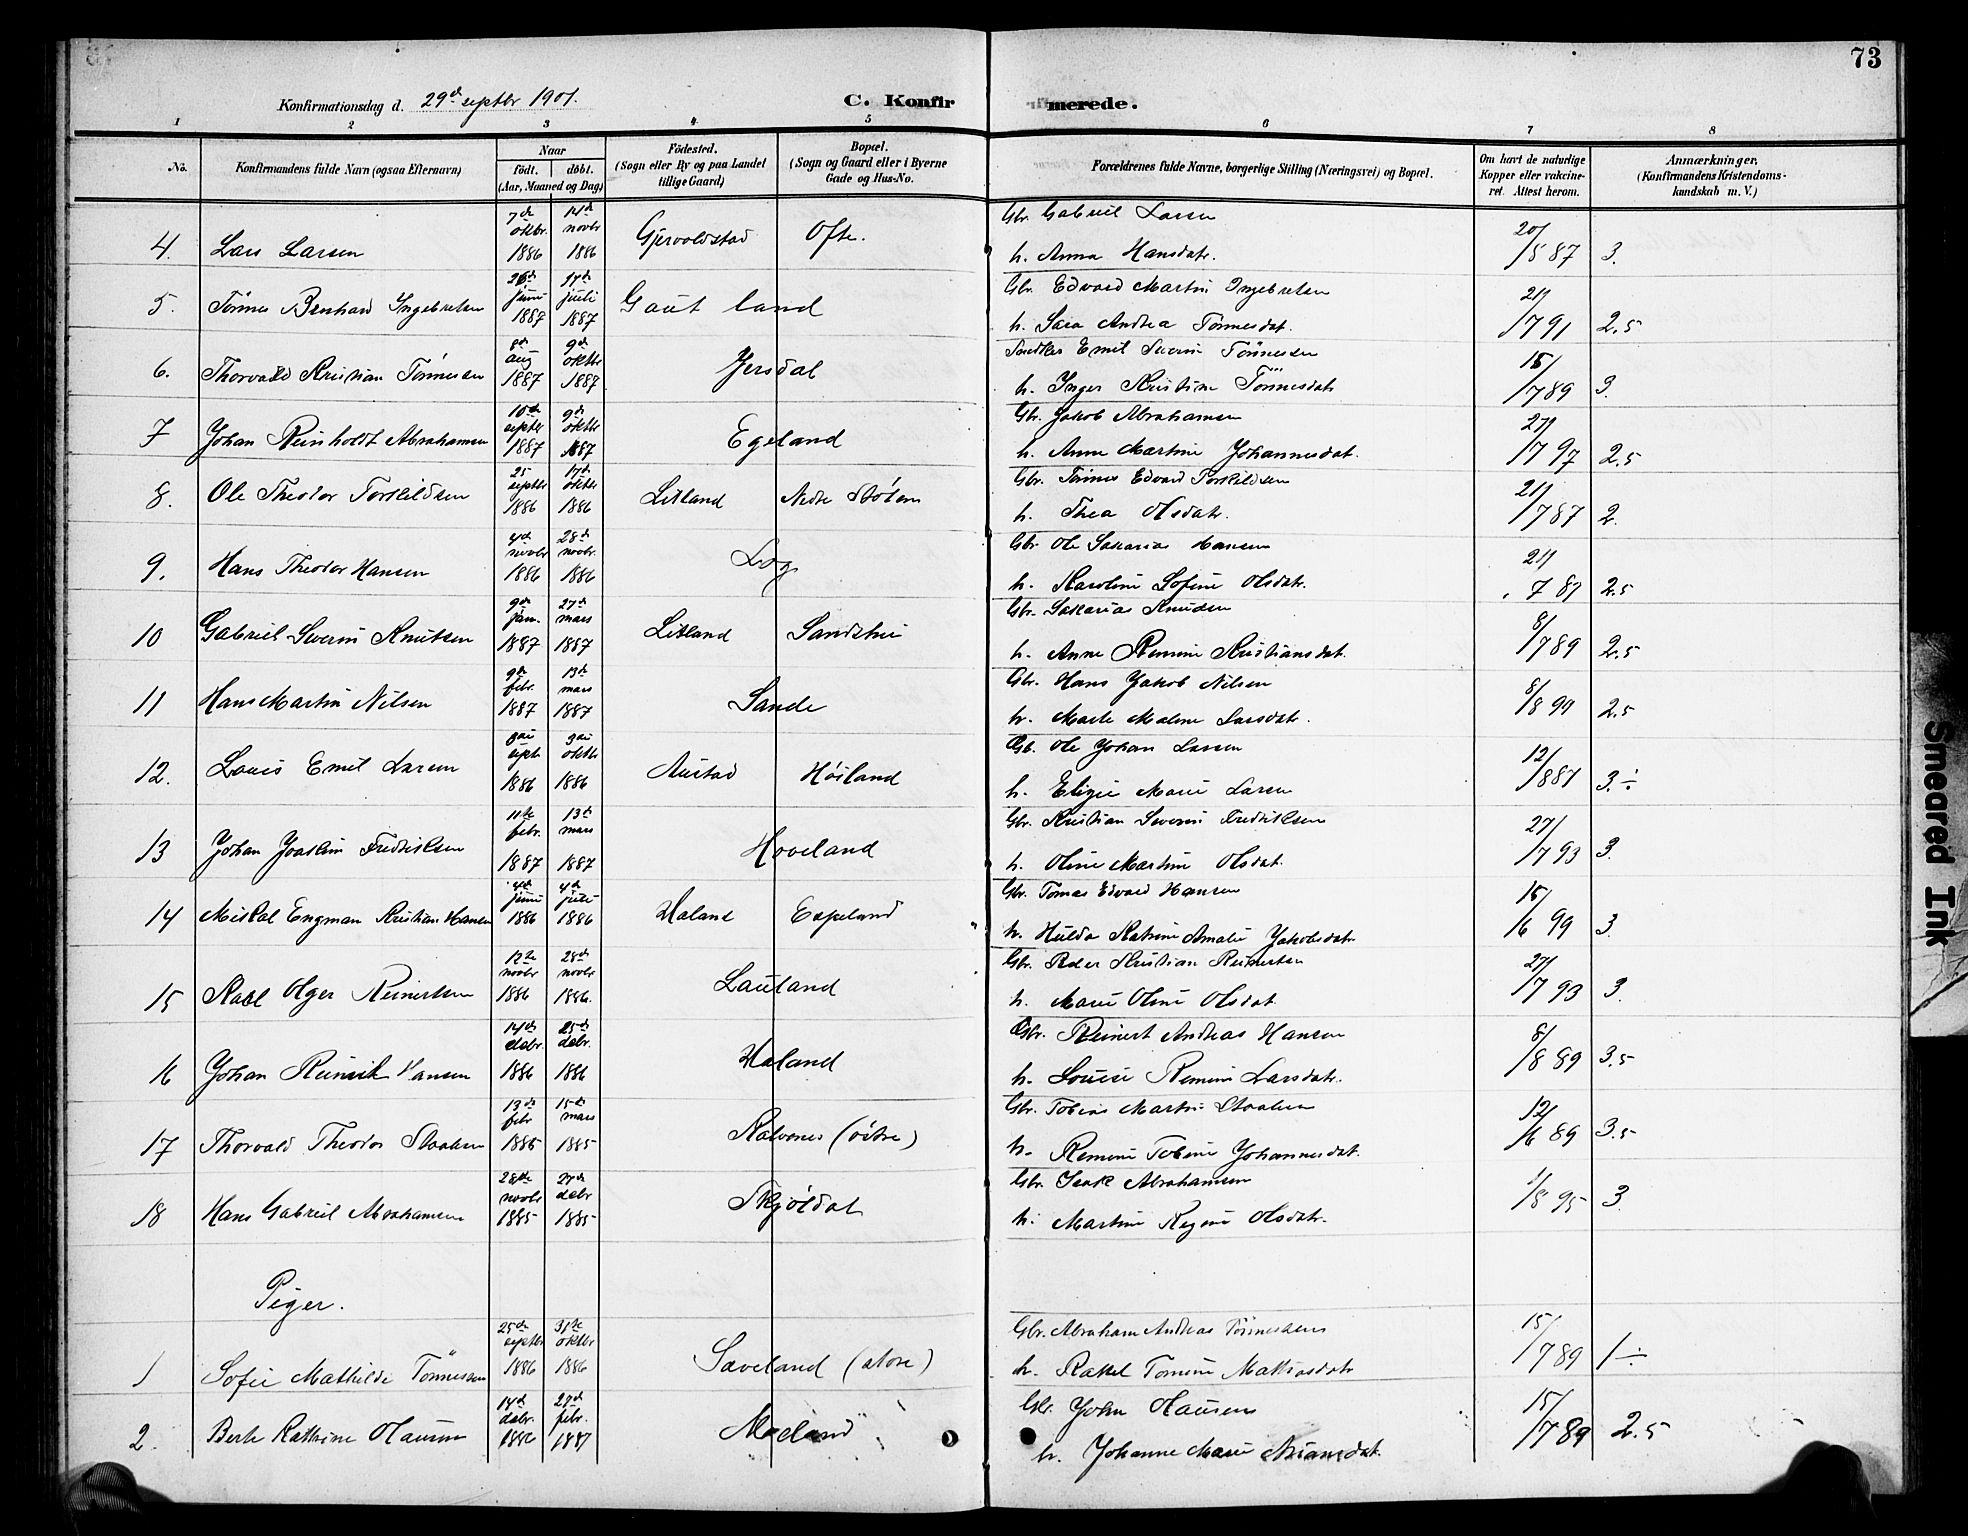 73
Konfirmationsdag d. 29d septbr 1901.
C. Konfir merede.
1 2 3 4 5 6 7 8
No.
Konfirmandens fulde Navn (ogsaa Efternavn)
Naar
födt. döbt.
(Aar, Maaned og Dag)
Födested.
(Sogn eller By og paa Landet
tillige Gaard)
Bopæl.
(Sogn og Gaard eller i Byerne
Gade og Hus-No.
Forældrenes fulde Navne, borgerlige Stilling (Næringsvei) og Bopæl.
Om havt de naturlige
Kopper eller vakcine-
ret. Attest herom.
Anmærkninger.
(Konfirmandens Kristendoms-
kundskab m. V.)
7de oktbr. 14de novbr Gbr. Gabriel Larsen
4. Lars Larsen 1886 1886 Gjervoldstad Ofte. h. Anna Hansdatr. 20/5 87 3.
26de juni 17de juli Gbr. Edvard Martin Ingebretsen
5. Tönnes Bernhard Ingebretsen 1887 1887 Gautland h. Sara Andrea Tönnesdat. 21/7 91 2.5
8de aug 9de oktbr Emil Severin Tönnessen
6. Thorvald Kristian Tönnessen 1887 1887 Jersdal h. Inger Kristine Tönnesdatr 15/7 89 3.
10de septbr 9de oktbr Gbr. Jakob Abrahamsen
7 Johan Reinholdt Abrahamsen 1887 1887 Egeland h. Anne Martine Johannesdat. 27/7 97 2.5
25 septbr 17de oktbr Gbr. Tönnes Edvard Torkildsen
8. Ole Theodor Torkildsen 1886 1886 Litland Nedre h. Thea Olsdatr. 21/7 87 2.
4de novbr 28de novbr. Gbr. Ole Sakarias Hansen
9. Hans Theodor Hansen 1886 1886 h. Karoline Sofine Olsdatr. 21 7 87 2.5
9de jan. 27de mars Gbr. Sakarias Knudsen
10 Gabriel Severin Knutsen 1887 1887 Litland h. Anne Remine Kristiansdat. 8/7 89 2.5
9de febr. 13de mars Gbr. Hans Jakob Nilsen
11 Hans Martin Nilsen 1887 1887 Sande h. Marte Malene Larsdatr. 8/8 99 2.5
sept. oktbr Gb. Ole Johan Larsen
12. Louis Emil Larsen 1886 1886 Austad Höiland h. Marie Larsen 12/8 87 3.÷
11te febr. 13de mars Gbr. Kristian Severin Fredriksen
13 Johan Joakim Fredriksen 1887 1887 Hoveland h. Oline Martine Olsdat. 27/7 93 3.
4de juni 4de juli Gbr. Tomas Edvard Hansen
14 Mikal Engman Kristian Hansen 1886 1886 Haland Espeland h. Hulda Katrine Amalie Jakobsdatr 15/6 99 3.
12te novbr 28de novbr Gbr. Peder Kristian Reinertsen
15 Karl Olger Reinertsen 1886 1886. Lauland h. Marie Oline Olsdat. 27/7 93 3.
14de debr. 25de debr. Gbr. Reinert Andreas Hansen
16 Johan Reinrik Hansen 1886 1886 Haland h. Louise Remine Larsdatr. 8/8 89 3.5
13de febr 15de mars Gbr. Tobias Martin Staalsen
17 Thorvald Theodor Staalsen 1885 1885 Kalvenes (östre) h. Remine Tobine Johannesdat. 12/6 89 3.5
28de novbr 27de debr Gbr. Isak Abrahamsen
18 Hans Gabriel Abrahamsen 1885 1885 Skjöldal h. Martine Regine Olsdatr. 1/8 95 3.
Piger.
25de septbr 31te oktbr Gbr. Abraham Andreas Tönnessen
1 Sofie Mathilde Tönnessen 1886 1886 Saveland (store) h. Rakel Tomine Mattiasdatr 15/7 89 1÷
14de debr. 27de febr. Gbr. John Hansen
2. Berte Kathrine Hansen 1886 1887 Mæland h. Johanne Marie 15/7 89 2.5
Smeared Ink